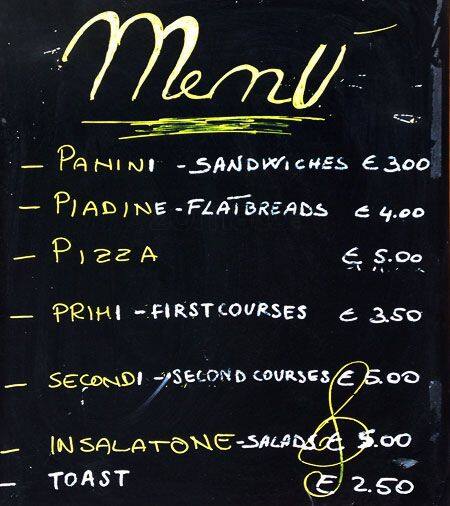 Menú
- PANINI - SANDWICHES € 3.00
- PIADINE - FLATBREADS € 4.00
- PIZZA € 5.00
- PRIMI - FIRST COURSES € 3.50
- SECONDI - SECOND COURSES € 5.00
- INSALATONE - SALADS € 5.00
- TOAST € 2.50